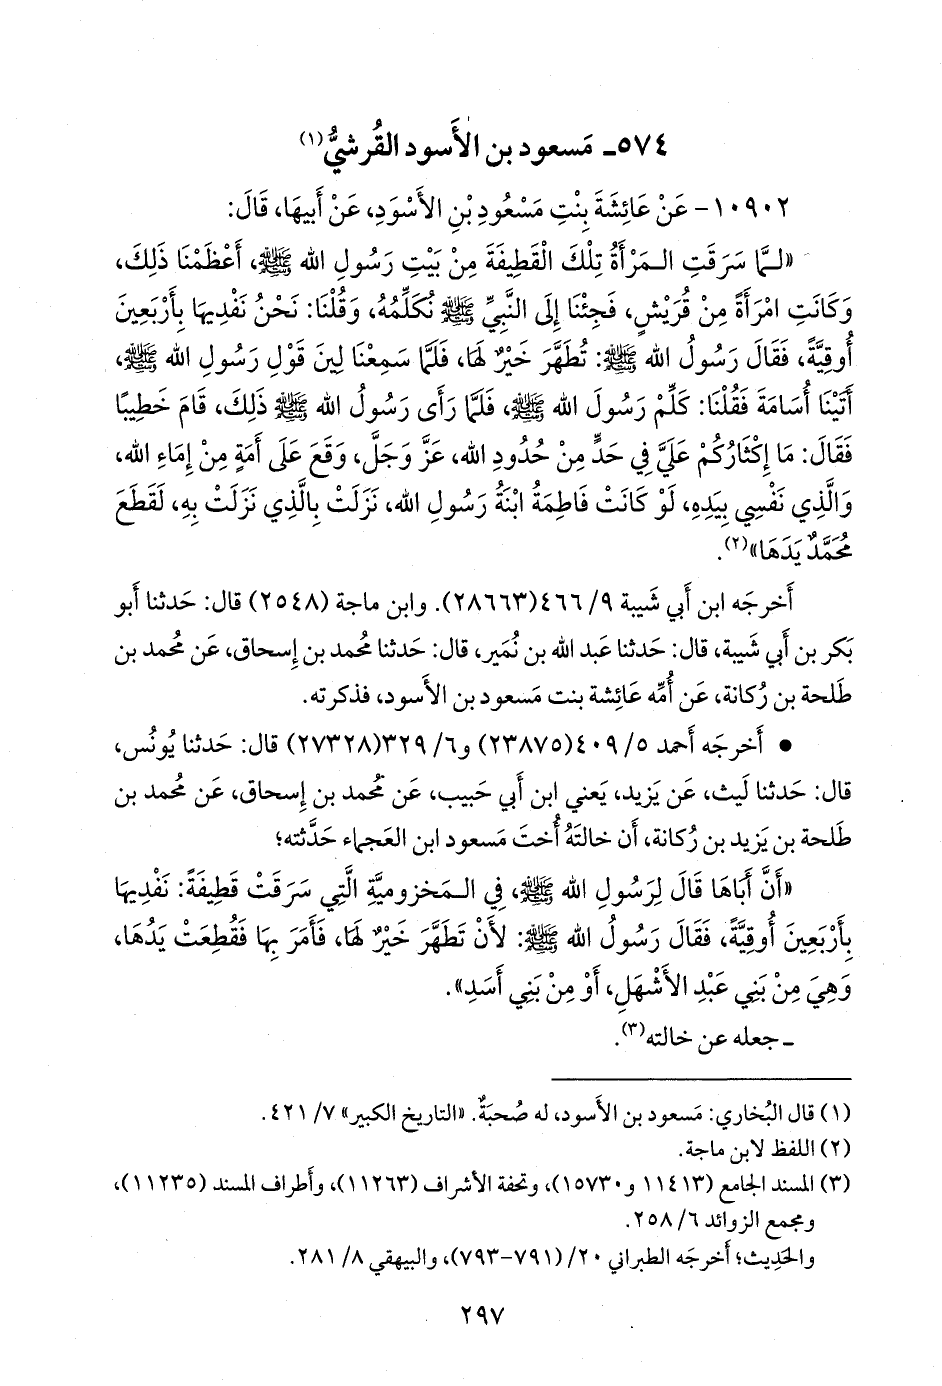 ٥٧٤ـ مَسعود بن الأَسود القُرشيُّ(١)
١٠٩٠٢- عَنْ عَائِشَةَ بِنْتِ مَسْعُودِ بْنِ الأَسْوَدِ، عَنْ أَبِيهَا، قَالَ:
«لَمَّا سَرَقَتِ الْمَرْأَةُ تِلْكَ الْقَطِيفَةَ مِنْ بَيْتِ رَسُولِ الله ﷺ، أَعْظَمْنَا ذَلِكَ،
وَكَانَتِ امْرَأَةً مِنْ قُرَيْشٍ، فَجِئْنَا إِلَى النَّبِيِّ ﷺ نُكَلِّمُهُ، وَقُلْنَا: نَحْنُ نَفْدِيهَا بِأَرْبَعِينَ
أُوقِيَّةً، فَقَالَ رَسُولُ الله ﷺ: تُطَهَّرَ خَيْرٌ لَهَا، فَلَمَّا سَمِعْنَا لِينَ قَوْلِ رَسُولِ الله ﷺ،
أَتَيْنَا أُسَامَةَ فَقُلْنَا: كَلِّمْ رَسُولَ الله ﷺ، فَلَمَّا رَأَى رَسُولُ الله ﷺ ذَلِكَ، قَامَ خَطِيبًا
فَقَالَ: مَا إِكْثَارُكُمْ عَلَيَّ فِي حَدٍّ مِنْ حُدُودِ الله، عَزَّ وَجَلَّ، وَقَعَ عَلَى أَمَةٍ مِنْ إِمَاءِ الله،
وَالَّذِي نَفْسِي بِيَدِهِ، لَوْ كَانَتْ فَاطِمَةُ ابْنَةُ رَسُولِ الله، نَزَلَتْ بِالَّذِي نَزَلَتْ بِهِ، لَقَطَعَ
مُحَمَّدٌ يَدَهَا»(٢).
أَخرجَه ابن أَبي شَيبة ٩/ ٤٦٦(٢٨٦٦٣). وابن ماجة (٢٥٤٨) قال: حَدثنا أَبو
بَكر بن أَبي شَيبة، قال: حَدثنا عَبد الله بن نُمَير، قال: حَدثنا مُحمد بن إِسحاق، عَن مُحمد بن
طَلحة بن رُكانة، عَن أُمِّه عَائِشة بنت مَسعود بن الأَسود، فذكرته.
• أَخرجَه أَحمد ٥/ ٤٠٩(٢٣٨٧٥) و٦/ ٣٢٩(٢٧٣٢٨) قال: حَدثنا يُونُس،
قال: حَدثنا لَيث، عَن يَزيد، يَعني ابن أَبي حَبيب، عَن مُحمد بن إِسحاق، عَن مُحمد بن
طَلحة بن يَزيد بن رُكانة، أَن خالتَهُ أُختَ مَسعود ابن العَجماء حَدَّثته؛
«أَنَّ أَبَاهَا قَالَ لِرَسُولِ الله ﷺ، فِي الْمَخزومِيَّةِ الَّتِي سَرَقَتْ قَطِيفَةً: نَفْدِيهَا
بِأَرْبَعِينَ أُوقِيَّةً، فَقَالَ رَسُولُ الله ﷺ: لأَنْ تَطَهَّرَ خَيْرٌ لَهَا، فَأَمَرَ بِهَا فَقُطِعَتْ يَدُهَا،
وَهِيَ مِنْ بَنِي عَبْدِ الأَشْهَلِ، أَوْ مِنْ بَنِي أَسَدِ».
ـ جعله عن خالته(٣).
(١) قال البُخاري: مَسعود بن الأَسود، له صُحبَةٌ. «التاريخ الكبير» ٧/ ٤٢١.
(٢) اللفظ لابن ماجة.
(٣) المسند الجامع (١١٤١٣ و١٥٧٣٠)، وتحفة الأشراف (١١٢٦٣)، وأَطراف المسند (١١٢٣٥)،
ومجمع الزوائد ٦/ ٢٥٨.
والحَدِيث؛ أَخرجَه الطبراني ٢٠/ (٧٩١-٧٩٣)، والبيهقي ٨/ ٢٨١.
٢٩٧